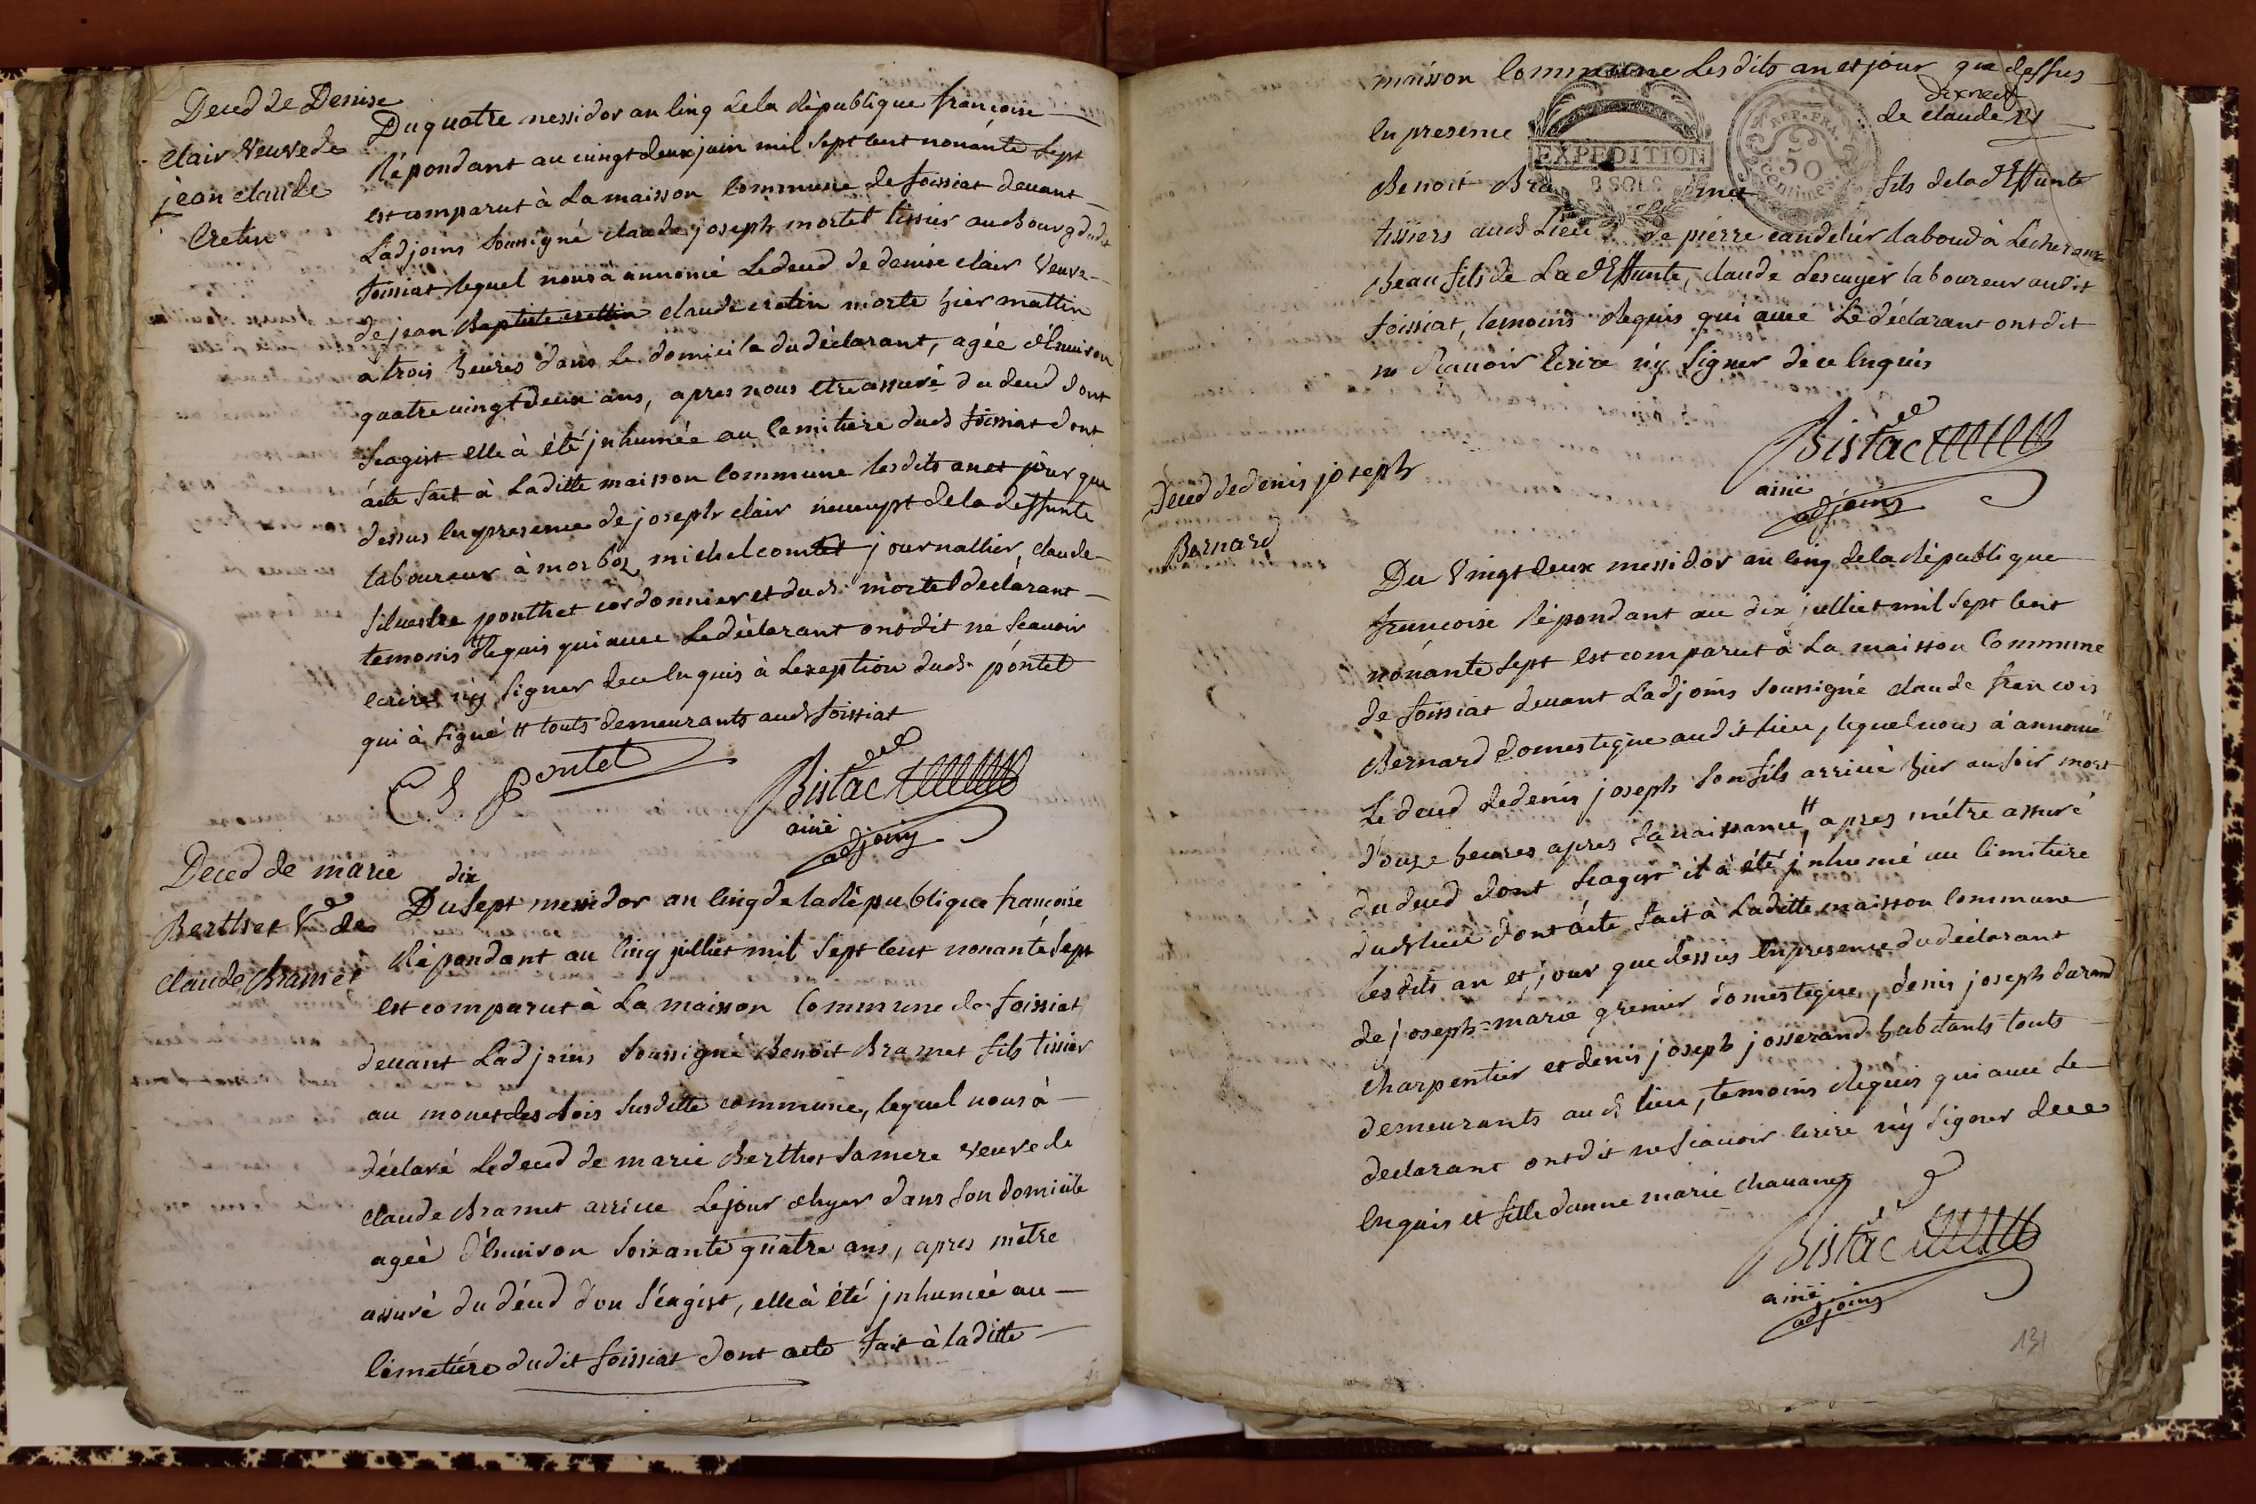 Deced de Denise
Clair veuve de
jean claude
Cretin
Du quatre messidor an cinq de la République françoise
Répondant au vingt deux juin mil sept cent nonante sept
est comparut à la maison commune de foissiat devant
Ladjoins soussigné claude joseph mortel tissier au bourg dudt
foissiat lequel nous a annoncé Le deced de denise clair veuve
de jean Baptiste crettin claude cretin morte hier mattin
a trois heures dans le domicile du déclarant, agée d'Environ
quatre vingt deux ans, apres nous etre assuré du deced dont
seagist elle à été jnhumée au Cemitiere dud foissiat dont
acte fait à Laditte maison Commune lesdits an et jour que
dessus En presence de joseph clair neveupt de la deffunte
laboureur à marboz, michel comtet journallier, claude
silvestre ponthet cordonnier et dud. mortel déclarant
temoins Requis qui avec Le déclarant ont dit ne scavoir
ecrire ny signer de ce Enquis à Lexeption dud. pontet
qui à signé # touts demeurants aud foissiat
C S Pontet
Bistac
ainé
adjoins
Deced de marie
Berthet Ve de
claude Bramet
dix
Du sept messidor an cinq de la République francoise
Répondant au cinq julliet mil sept cent nonante sept
est comparut à La maison Commune de foissiat
devant Ladjoins soussigné Benoit Bramet fils tissier
au mouet des bois susditte commune, lequel nous à
déclaré Le deced de marie Berthet sa mere veuve de
claude Bramet arrivé Le jour d'hyer dans son domicile
agée d'Environ soixante quatre ans, apres m'etre
assuré du déced d'on s'éagist, elle à été jnhumée au
Cimetiére dudit foissiat dont acte fait à laditte
maison Commune Lesdits an et jour que dessus
dixneuf
En presence de claude
EXPEDITION
REP. FRA.
50
centimes
Benoit Bra met fils de la d'Effunte
tissiers aud Lieu de pierre candelier laboud à Lecheroux
Beau fils de La d'Effunte, claude descuyer laboureur audit
foissiat, temoins Requis qui avec Le déclarant ont dit
ne scavoir Ecrire ny signer de ce Enquis
Bistac
ainé
adjoins
Deced de denis joseph
Bernard
Du vingt deux messidor an cinq de la République
françoise Répondant au dix julliet mil sept cent
nonante sept est comparut à La maison Commune
de foissiat devant Ladjoins soussigné claude francois
Bernard domestique audit lieu, lequel nous à annoncé
Le deced de denis joseph son fils arrivé hier au soir mort
d'ouze heures apres sa naissance #, apres m'être assuré
du deced dont seagist il à été jnhumé au Cimitiere
dud lieu dont acte fait à Laditte maison Commune
lesdits an et jour que dessus En presence du déclarant
de joseph-marie grenier domestique, denis joseph durand
charpentier et denis joseph josserand habitants touts
demeurants aud lieu, temoins Requis qui avec le
déclarant ont dit ne scavoir ecrire ny signer de ce
Enquis et fils danne marie chavanet
Bistac
ainé
adjoins
131